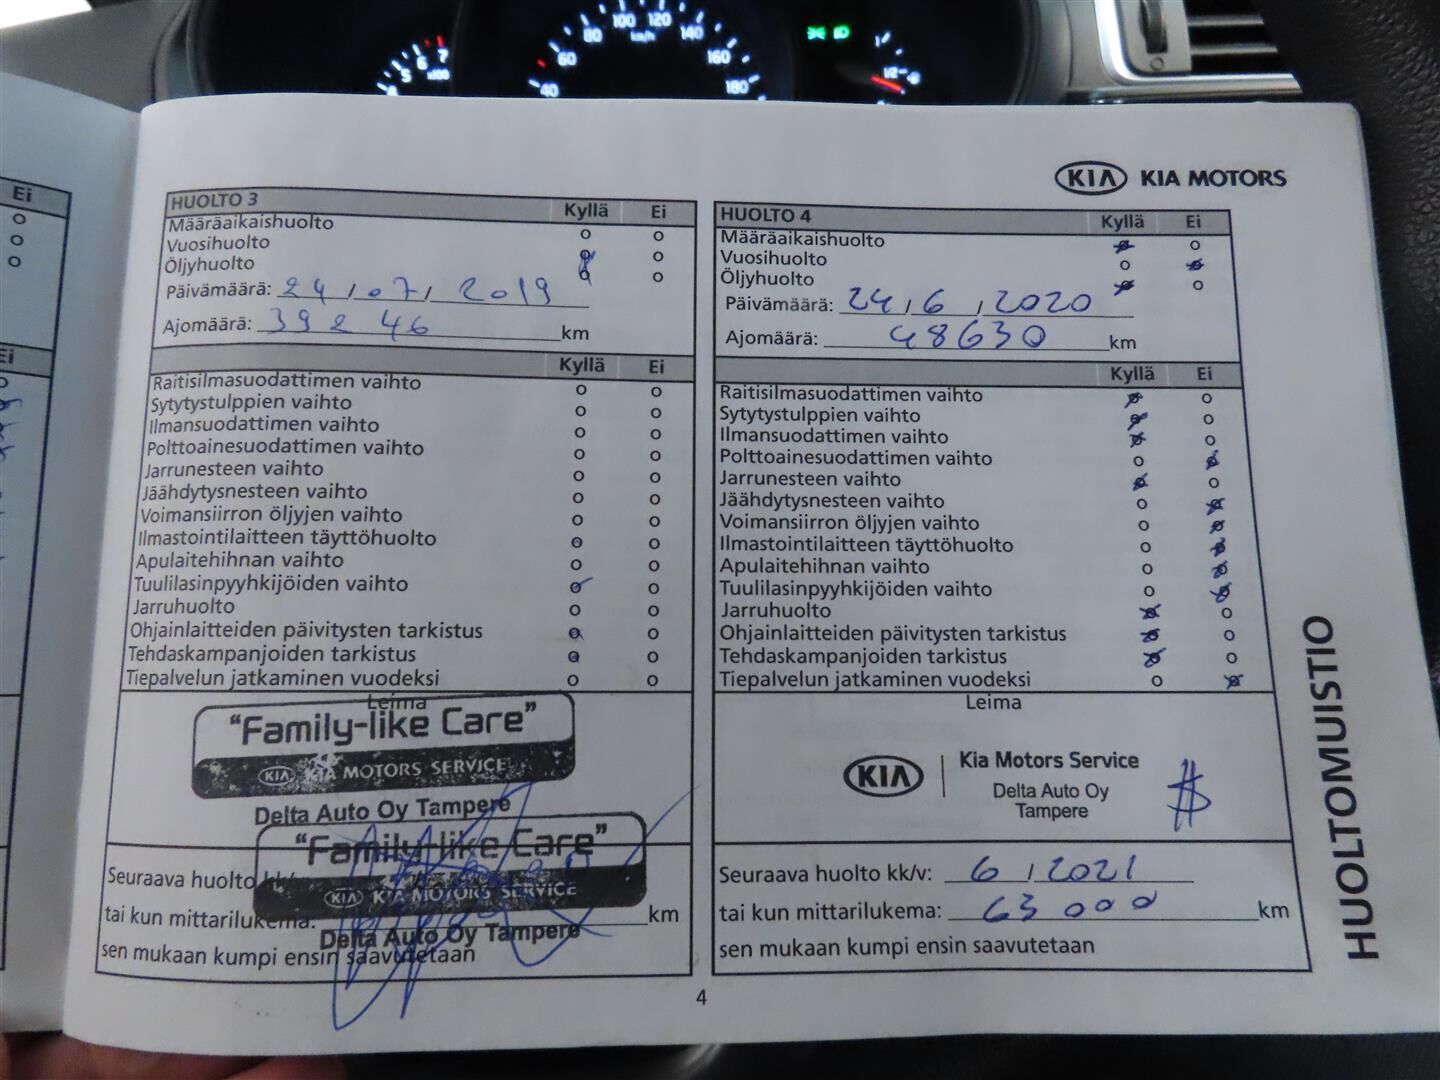 7
6
5
4
x100
40
60
80
100
120
140
160
180
km/h
1
1/2
Ei
Ei
KIA KIA MOTORS
HUOLTO 3 Kyllä Ei
Määräaikaishuolto
Vuosihuolto
Öljyhuolto
Päivämäärä: 24/07/2019
Ajomäärä: 39246 km
Kyllä Ei
Raitisilmasuodattimen vaihto
Sytytystulppien vaihto
Ilmansuodattimen vaihto
Polttoainesuodattimen vaihto
Jarrunesteen vaihto
Jäähdytysnesteen vaihto
Voimansiirron öljyjen vaihto
Ilmastointilaitteen täyttöhuolto
Apulaitehihnan vaihto
Tuulilasinpyyhkijöiden vaihto
Jarruhuolto
Ohjainlaitteiden päivitysten tarkistus
Tehdaskampanjoiden tarkistus
Tiepalvelun jatkaminen vuodeksi
Leima
"Family-like Care"
KIA KIA MOTORS SERVICE
Delta Auto Oy Tampere
"Family-like Care"
KIA KIA MOTORS SERVICE
Delta Auto Oy Tampere
Seuraava huolto kk/v:
tai kun mittarilukema: km
sen mukaan kumpi ensin saavutetaan
HUOLTO 4 Kyllä Ei
Määräaikaishuolto
Vuosihuolto
Öljyhuolto
Päivämäärä: 24/6/2020
Ajomäärä: 48630 km
Kyllä Ei
Raitisilmasuodattimen vaihto
Sytytystulppien vaihto
Ilmansuodattimen vaihto
Polttoainesuodattimen vaihto
Jarrunesteen vaihto
Jäähdytysnesteen vaihto
Voimansiirron öljyjen vaihto
Ilmastointilaitteen täyttöhuolto
Apulaitehihnan vaihto
Tuulilasinpyyhkijöiden vaihto
Jarruhuolto
Ohjainlaitteiden päivitysten tarkistus
Tehdaskampanjoiden tarkistus
Tiepalvelun jatkaminen vuodeksi
Leima
KIA Kia Motors Service
Delta Auto Oy
Tampere
Seuraava huolto kk/v: 6/2021
tai kun mittarilukema: 63 000 km
sen mukaan kumpi ensin saavutetaan
HUOLTOMUISTIO
4